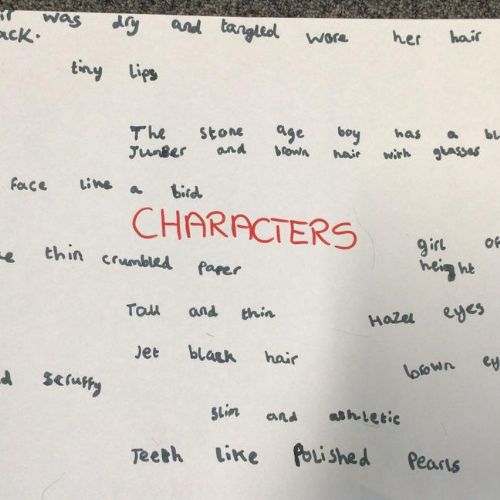 was dry and tangled wore her hair
tiny lips
The stone age boy has a
Jumber and brown hair with glasses
Face like a bird
CHARACTERS
girl
height
thin crumbled paper
Tall and thin
Hazel eyes
Jet black hair
brown
scruffy
slim and athletic
Teeth like Polished Pearls